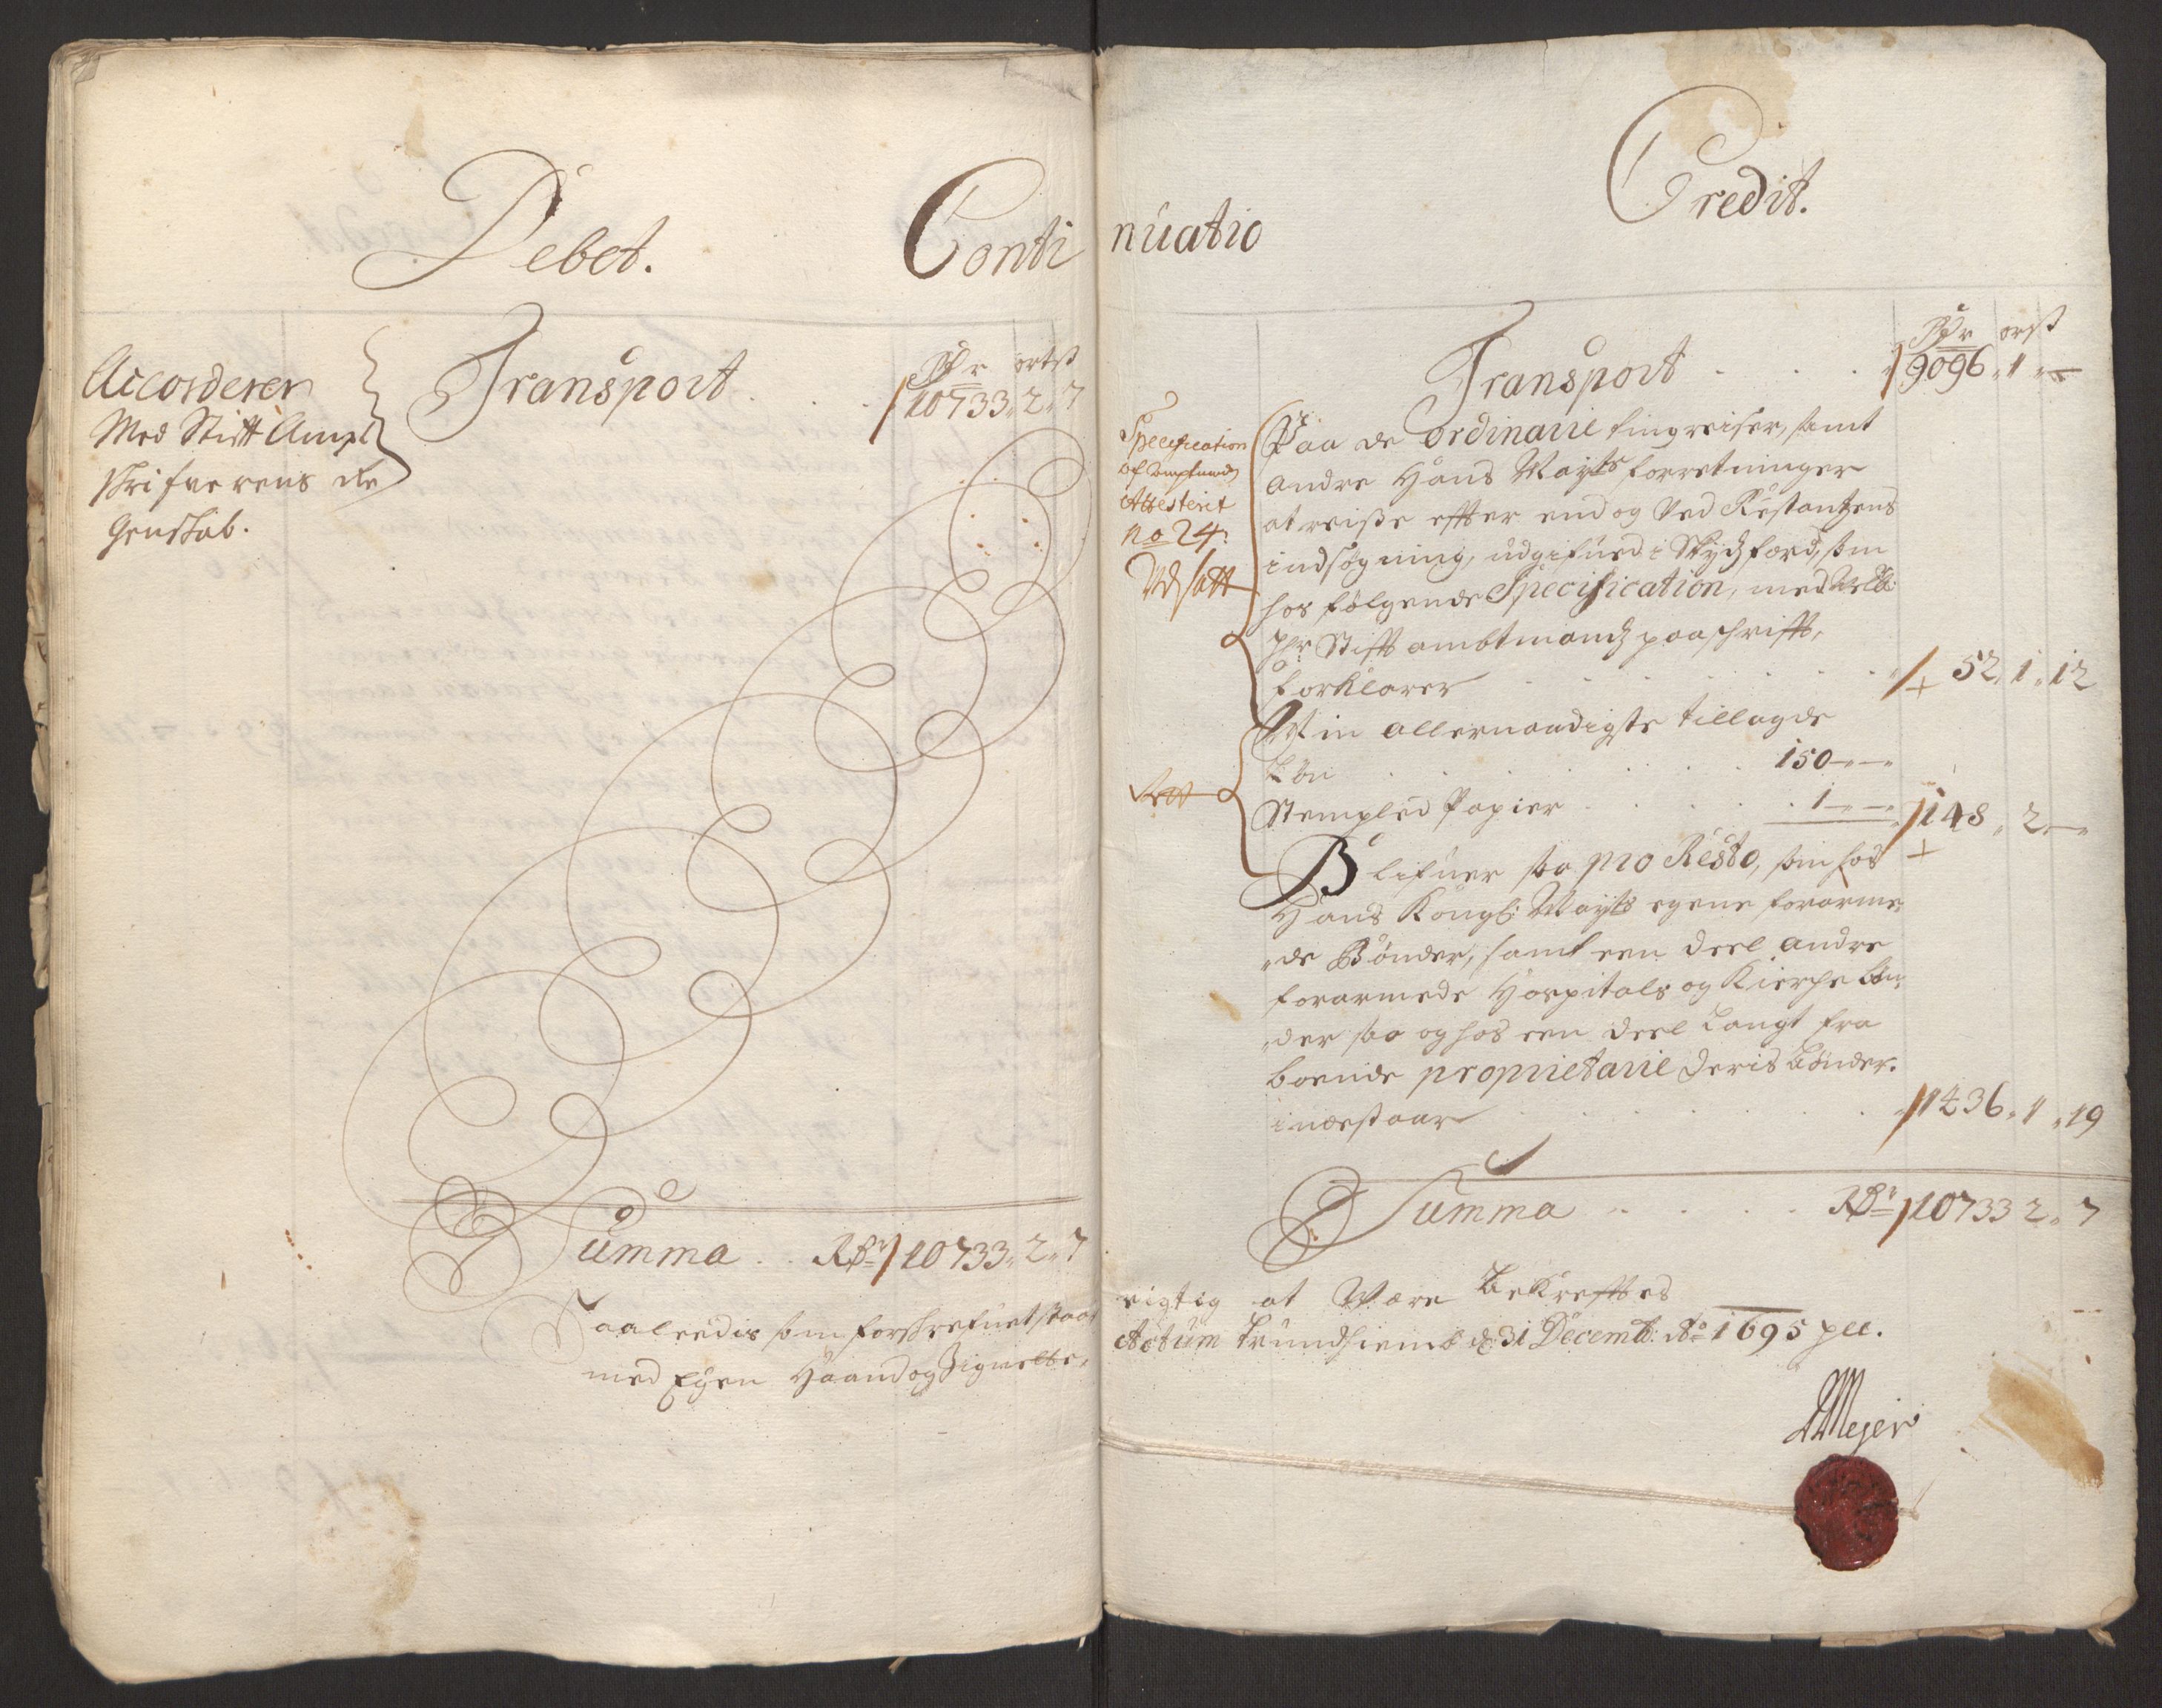 Debet.
Conti nuatio
Credit.
Accorderer
Med Stifft Ampt
skrifverens Re
genskab.
Transport . . . 10733„ 2„ 7
Rdr ort s
Summa . . Rdr 10733„ 2„ 7
Saaledis som forskrefuet staar
med Egen Haand og Zignette,
Rdr ort s
Transport . . . 9096„ 1„ —
Specification
af Amptmandz
Attesterit
no 24:
Paa de ordinarie tingreiser, samt
andre Hans Mayts forretninger
at reise effter end og Ved Restantzens
indsøgning, udgifued i Skydzferd, som
hos følgende Specification, med Velb:
Hr Stifftambtmandz paaschrifft,
forklarer . . . 52„ 1„ 12
Min allernaadigste tillagde
Løn . . . 150 — —
Stempled Papier . . . 1 — — 148„ 2 —
Blifuer saa pro Resto, som hos
Hans Kongl: Mayts egene forarme„
„de Bønder, samt een deel andre
forarmede Hospitals og Kierche bøn„
„der saa og hos een deel langt fra
boende proprietarie deris bønder.
i næstaar . . . 1436„ 1„ 19
Summa . . . Rdr 10733 2„ 7
rigtig at Være bekrefftes
Actum Trundhiemb d: 31 Decemb: Ao 1695
Mejer